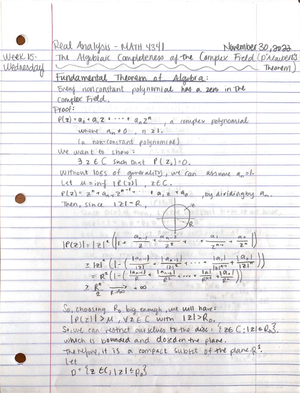 Real Analysis - MATH 4341 November 30, 2022
Week 15- The Algebraic Completeness of the Complex Field (D'Alembert's
Wednesday Theorem)
Fundamental Theorem of Algebra:
Every nonconstant polynomial has a zero in the
Complex Field.
Proof:
P(z) = a₀ + a₁z + ··· + aₙzⁿ , a complex polynomial
where aₙ ≠ 0, n ≥ 1.
(a non-constant polynomial)
We want to show:
∃ z ∈ ℂ such that P(z₀) = 0.
Without loss of generality, we can assume aₙ = 1.
Let μ = inf |P(z)|, z ∈ ℂ.
P(z) = zⁿ + aₙ₋₁zⁿ⁻¹ + ··· + a₁z + a₀, by dividing by aₙ.
Then, since |z| = R,
|P(z)| = |z|ⁿ (|1 + aₙ₋₁/z + aₙ₋₂/z² + ··· + a₁/zⁿ⁻¹ + a₀/zⁿ|)
≥ |z|ⁿ (1 - (|aₙ₋₁|/|z| + |aₙ₋₂|/|z|² + ··· + |a₁|/|z|ⁿ⁻¹ + |a₀|/|z|ⁿ))
= Rⁿ (1 - (|aₙ₋₁|/R + |aₙ₋₂|/R² + ··· + |a₁|/Rⁿ⁻¹ + |a₀|/Rⁿ))
≥ Rⁿ/2 → +∞
So, choosing R₀ big enough, we will have:
|P(z)| > μ, ∀ z ∈ ℂ with |z| > R₀.
So, we can restrict ourselves to the disc: {z ∈ ℂ; |z| ≤ R₀},
which is bounded and closed in the plane.
Therefore, it is a compact subset of the plane, ℝ².
Let
D = {z ∈ ℂ, |z| ≤ R₀}